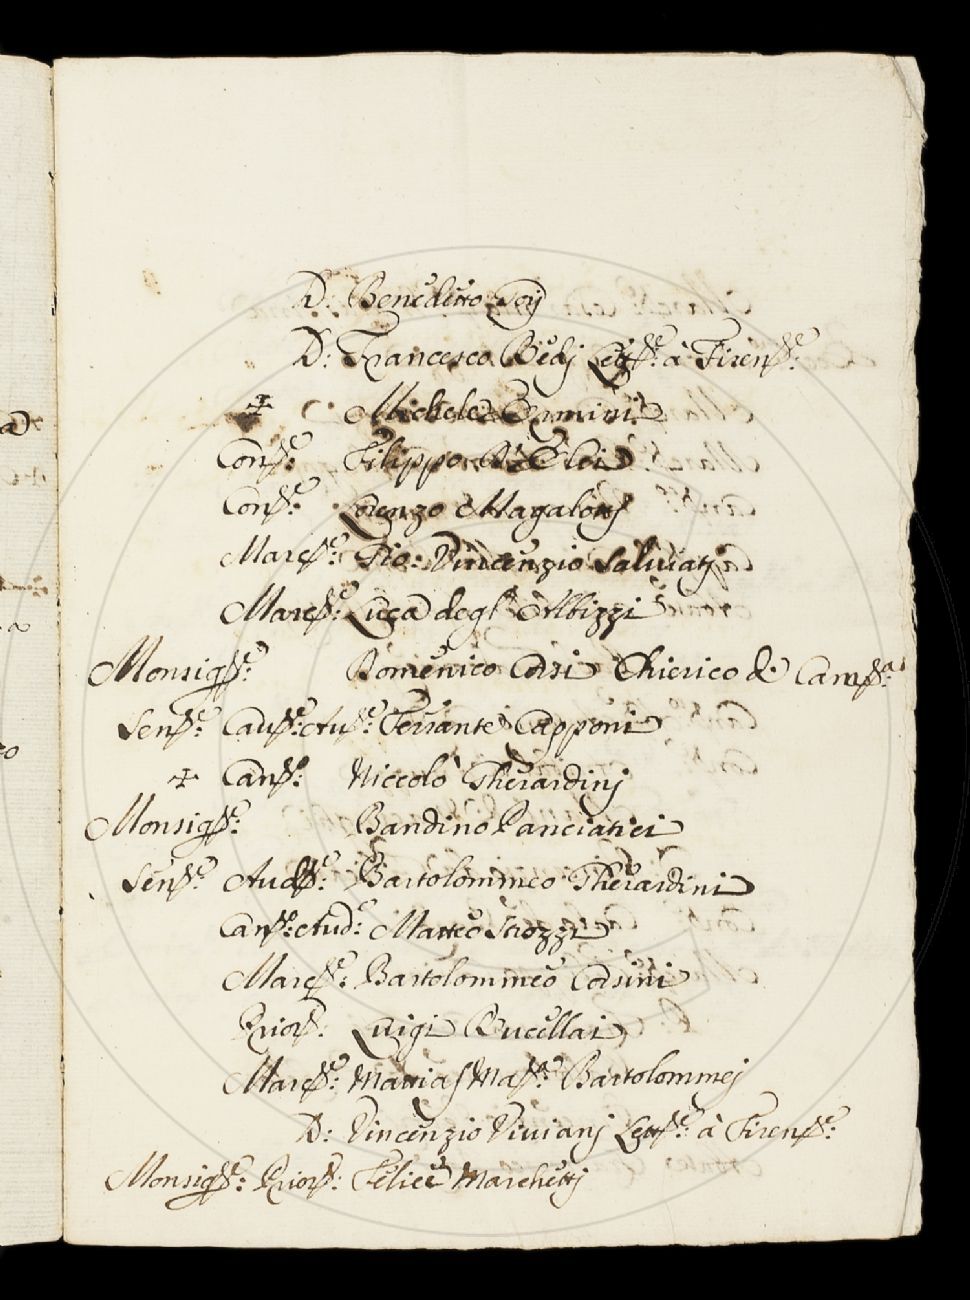 D: Benedetto Goij
D: Francesco Redj Lettre: à Firenze:
+ Michele Ermini
Conte: Filippo D'Elci
Conte: Lorenzo Magalottj
Marchse: Gio: Vincenzio Salviatj
Marchse: Luca degl' Albizzi
Monsigre: Domenico Corsi Chierico di Camera:
Senre: Cavre: Audre: Ferrante Capponi
+ Canco: Niccolò Gherardinj
Monsigre: Bandino Panciatici
Senre: Audre: Bartolommeo Gherardini
Canco: Aud: Matteo Strozzi
Marchse: Bartolommeo Corsini
Priore: Luigi Rucellai
Marchse: Mattias Ma: Bartolommej
D: Vincenzio Vivianj Lettre: à Firenze:
Monsigre: Priore: Felice Marchettj